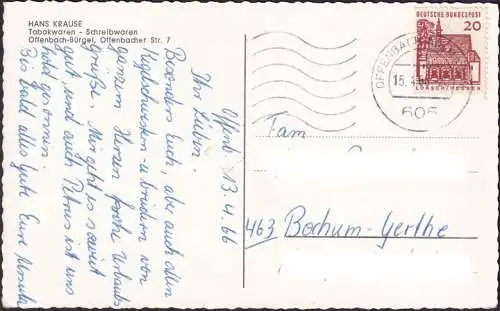 HANS KRAUSE
Tabakwaren - Schreibwaren
Offenbach-Bürgel, Offenbacher Str. 7
Offenb. 13.4.66
Ihr Lieben.
Besonders Euch, aber auch allen
Kegelschwestern u. brüdern von
ganzem Herzen frohe Urlaubs
Grüße. Mir geht es soweit
gut und auch Petrus ist uns
hold gesonnen.
Bis bald alles Gute Eure Monika
DEUTSCHE BUNDESPOST
20
LORSCH/HESSEN
OFFENBACH
15.
605
Fam
463 Bochum-Gerthe